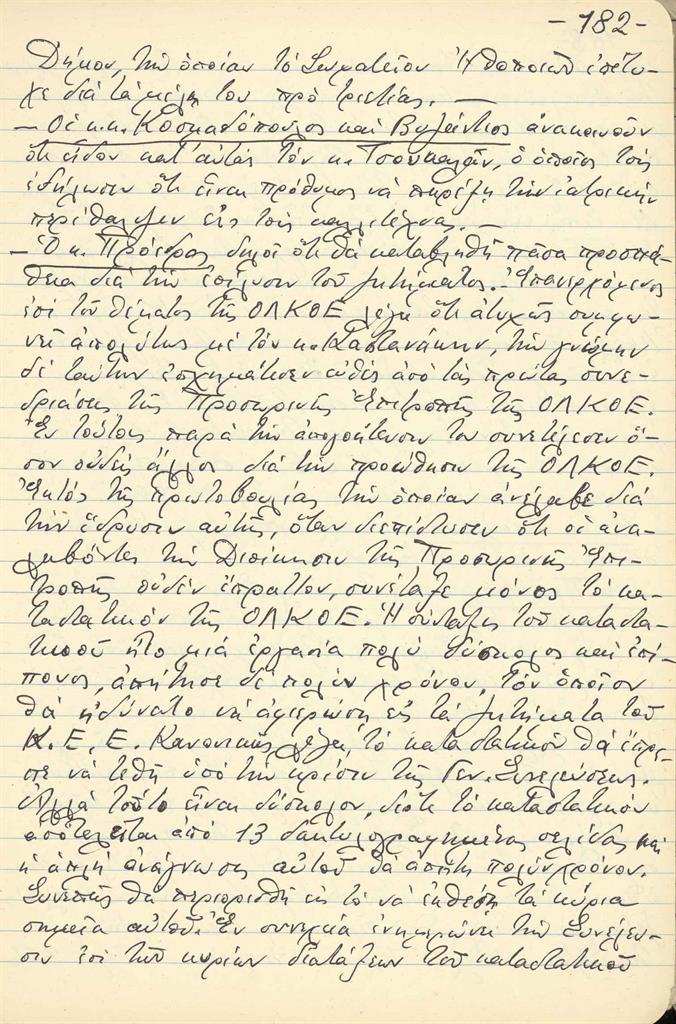 -182-
Δῆμον, τὴν ὁποίαν τὸ Σωματεῖον Ἠθοποιῶν ἐπέτυ-
χε διὰ τὰ μέλη του πρὸ τριετίας. —
- Οἱ κ.κ. Κοσμαδόπουλος καὶ Βυζάντιος ἀνακοινοῦν
ὅτι εἶδον κατ' αὐτὰς τὸν κ. Τσουκαλᾶν, ὁ ὁποῖος τοὺς
ἐδήλωσεν ὅτι εἶναι πρόθυμος νὰ παρέξῃ τὴν ἰατρικὴν
περίθαλψιν εἰς τοὺς καλλιτέχνας. —
- Ὁ κ. Πρόεδρος δηλοῖ ὅτι θὰ καταβληθῇ πᾶσα προσπά-
θεια διὰ τὴν ἐπίλυσιν τοῦ ζητήματος. - Ἐπανερχόμενος
ἐπὶ τοῦ θέματος τῆς ΟΛΚΟΕ λέγει ὅτι ἀτυχῶς συμφω-
νεῖ ἀπολύτως μὲ τὸν κ. Καστανάκην, τὴν γνώμην
δὲ ταύτην ἐσχημάτισεν εὐθὺς ἀπὸ τὰς πρώτας συνε-
δριάσεις τῆς Προσωρινῆς Ἐπιτροπῆς τῆς ΟΛΚΟΕ.
Ἐν τούτοις παρὰ τὴν ἀπογοήτευσίν του συνετέλεσεν ὅ-
σον οὐδεὶς ἄλλος διὰ τὴν προώθησιν τῆς ΟΛΚΟΕ.
Ἐκτὸς τῆς πρωτοβουλίας τὴν ὁποίαν ἀνέλαβε διὰ
τὴν ἵδρυσιν αὐτῆς, ὅταν διεπίστωσεν ὅτι οἱ ἀνα-
λαβόντες τὴν Διοίκησιν τῆς Προσωρινῆς Ἐπι-
τροπῆς οὐδὲν ἔπραττον, συνέταξε μόνος τὸ κα-
ταστατικὸν τῆς ΟΛΚΟΕ. Ἡ σύνταξις τοῦ καταστα-
τικοῦ ἦτο μιὰ ἐργασία πολὺ δύσκολος καὶ ἐπί-
πονος, ἀπῄτησε δὲ πολὺν χρόνον, τὸν ὁποῖον
θὰ ἠδύνατο νὰ ἀφιερώσῃ εἰς τὰ ζητήματα τοῦ
Κ.Ε.Ε. Κανονικῶς λέγει, τὸ καταστατικὸν θὰ ἔπρε-
πε νὰ τεθῇ ὑπὸ τὴν κρίσιν τῆς Γεν. Συνελεύσεως.
Ἀλλὰ τοῦτο εἶναι δύσκολον, διότι τὸ καταστατικὸν
ἀποτελεῖται ἀπὸ 13 δακτυλογραφημένας σελίδας καὶ
ἡ ἁπλῆ ἀνάγνωσις αὐτοῦ θὰ ἀπῄτει πολὺν χρόνον.
Συνεπῶς θὰ περιορισθῇ εἰς τὸ νὰ ἐκθέσῃ τὰ κύρια
σημεῖα αὐτοῦ. Ἐν συνεχείᾳ ἐνημερώνει τὴν Συνέλευ-
σιν ἐπὶ τῶν κυρίων διατάξεων τοῦ καταστατικοῦ